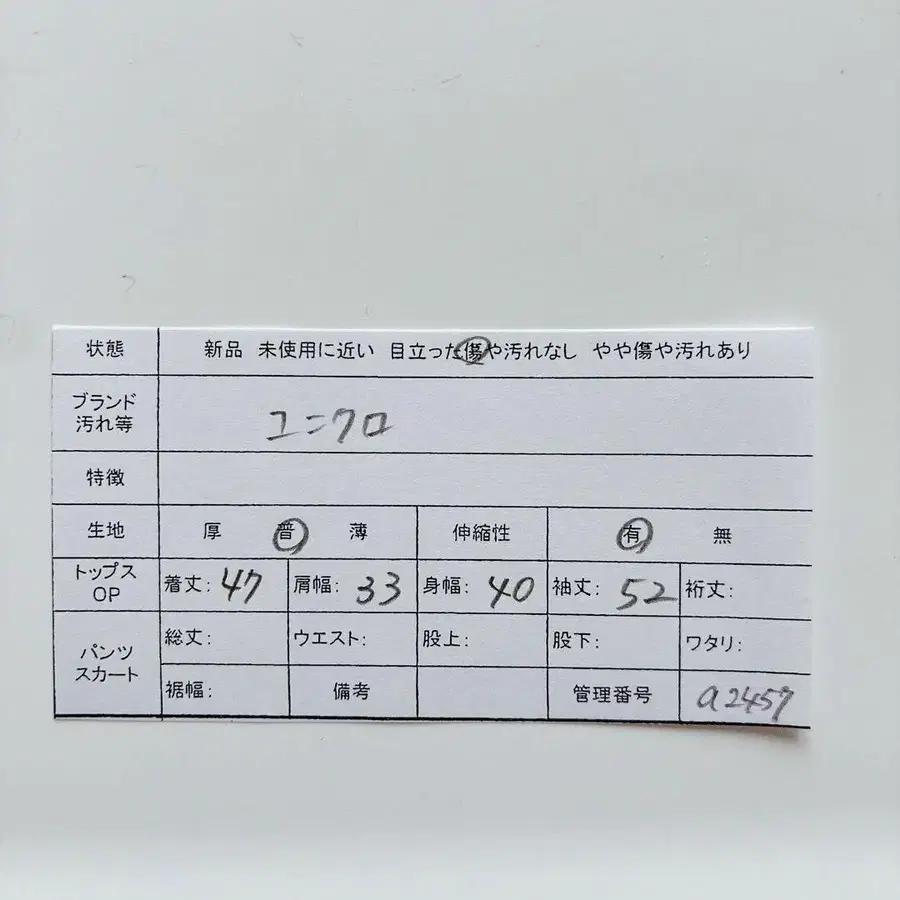 状態 新品 未使用に近い 目立った傷や汚れなし やや傷や汚れあり
ブランド
汚れ等
ユニクロ
特徴
生地 厚 普 薄 伸縮性 有 無
トップス
OP
着丈: 47 肩幅: 33 身幅: 40 袖丈: 52 裄丈:
パンツ
スカート
総丈: ウエスト: 股上: 股下: ワタリ:
裾幅: 備考 管理番号 a2457